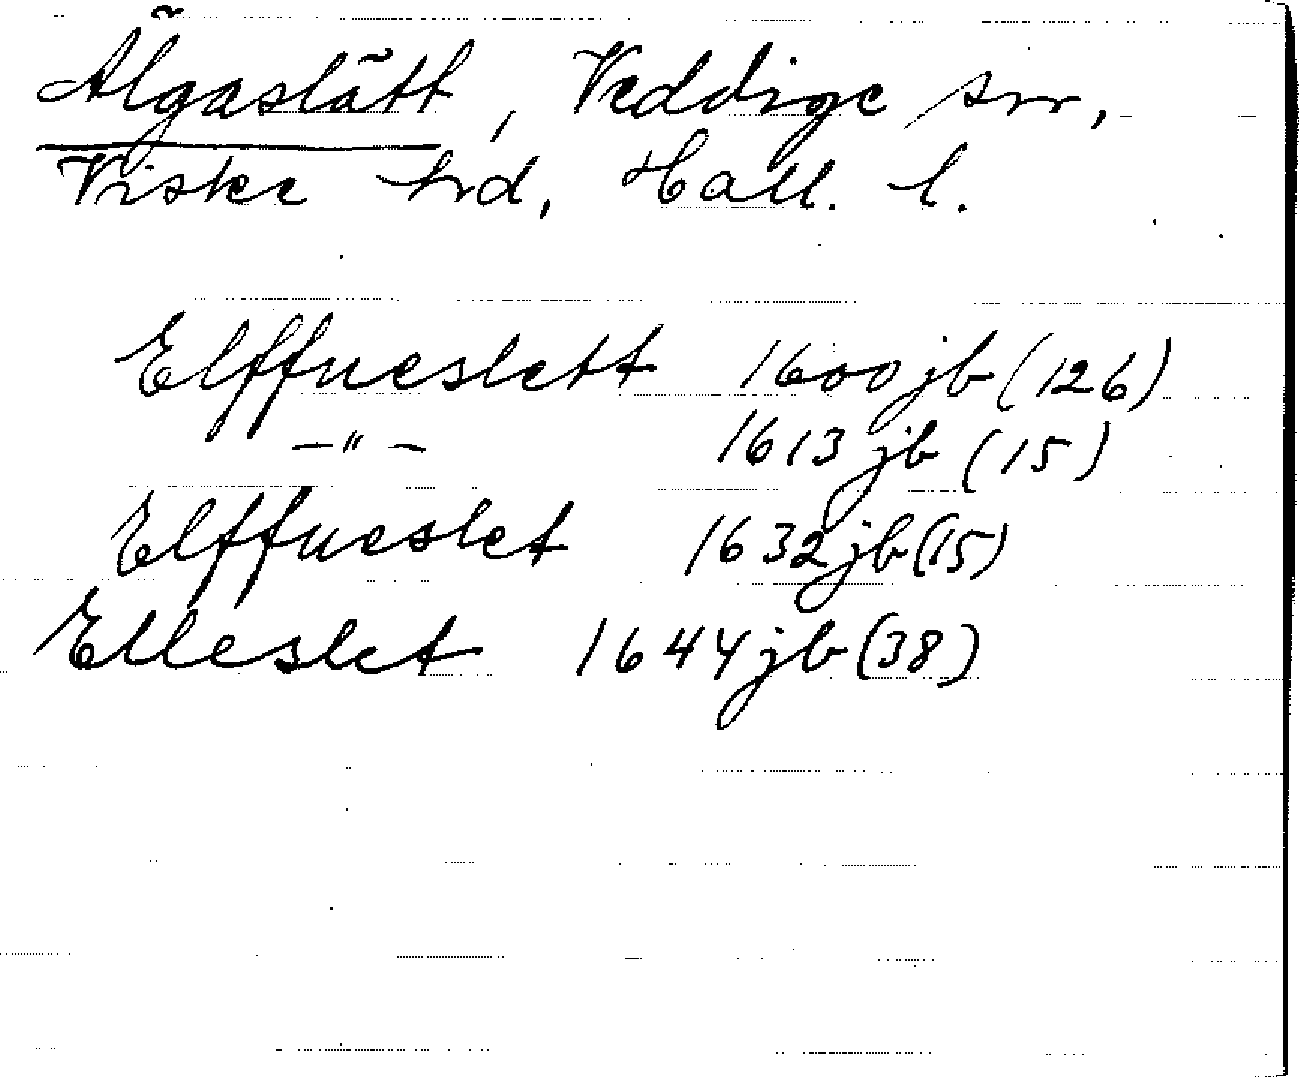 Älgaslätt, Veddige sn,
Viske hrd, Hall. l.
Elffueslett 1600 jb (126)
—"— 1613 jb (15)
Elffueslet 1632 jb (15)
Elleslet 1644 jb (38)